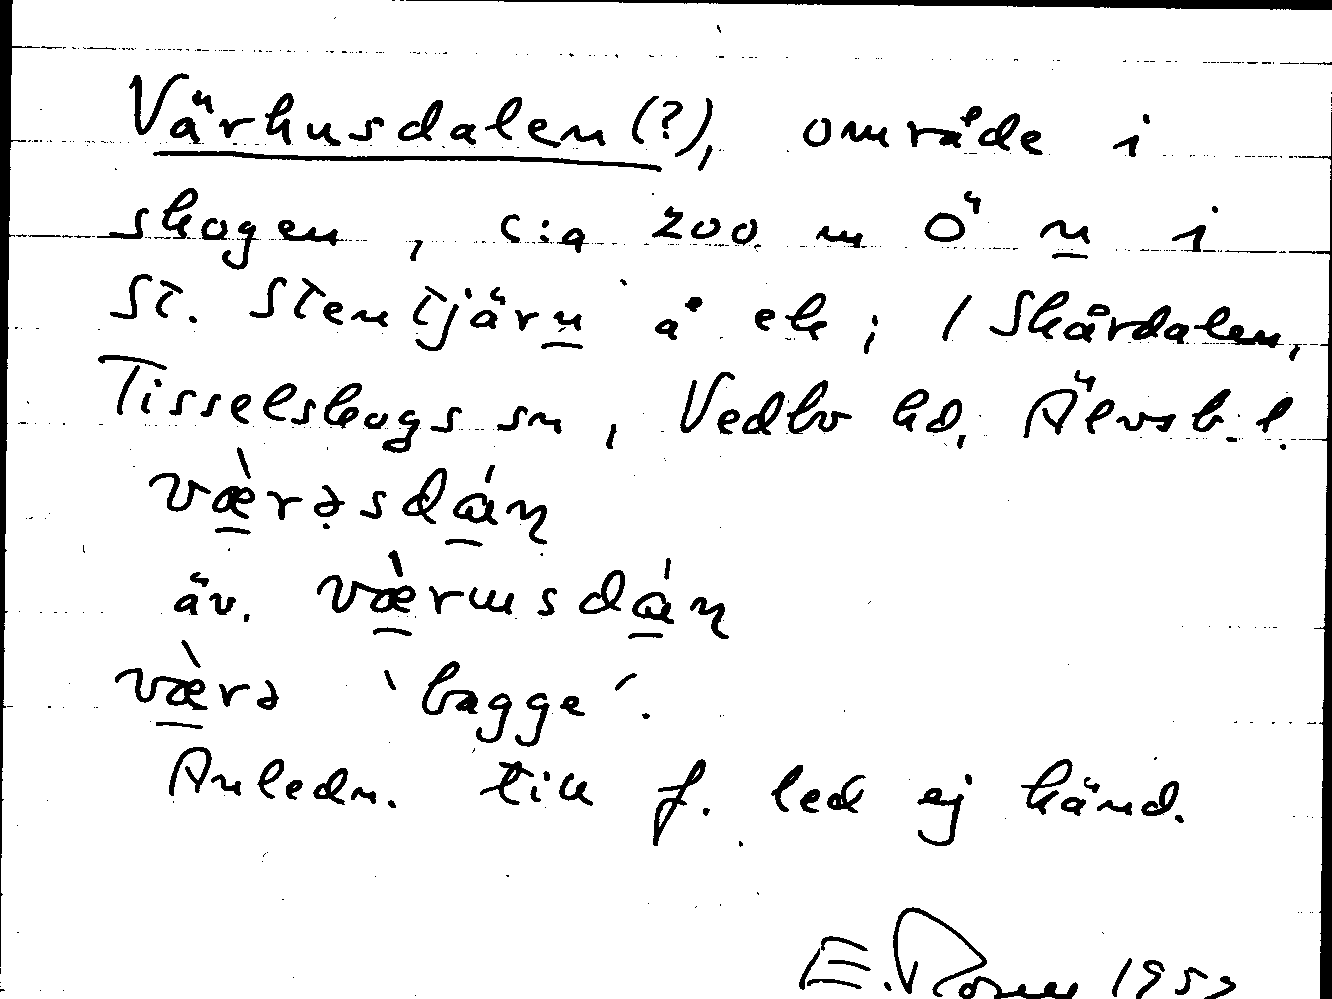 Värhusdalen (?), område i
skogen, c:a 200 m Ö n i
St. Stentjärn å ek; 1 Skårdalen,
Tisselskogs sn, Vedbo hd, Älvsb. l.
væ̀rəsdáɳ
äv. væ̀rɯsdáɳ
væ̀rə 'bagge'.
Anledn. till f. led ej känd.
E. 195